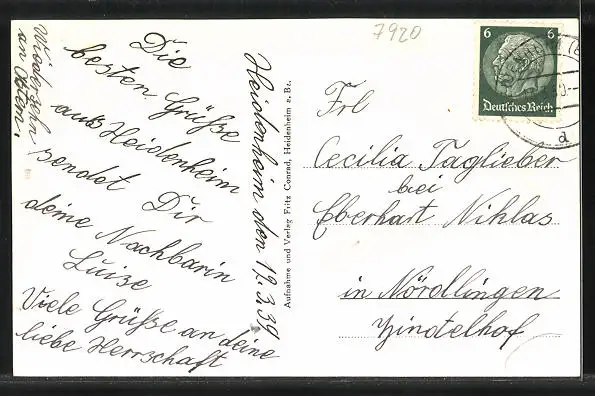 7920
Wiedersehn
an Ostern.
Die
besten Grüße
aus Heidenheim
sendet Dir
deine Nachbarin
Luise
Viele Grüße an deine
liebe Herrschaft
Heidenheim den 19.3.39
Aufnahme und Verlag Fritz Conrad, Heidenheim a. Bz.
6 6
Deutsches Reich
a
Frl
Cecilia Taglieber
bei
Eberhart Nihlas
in Nördlingen
Zindelhof